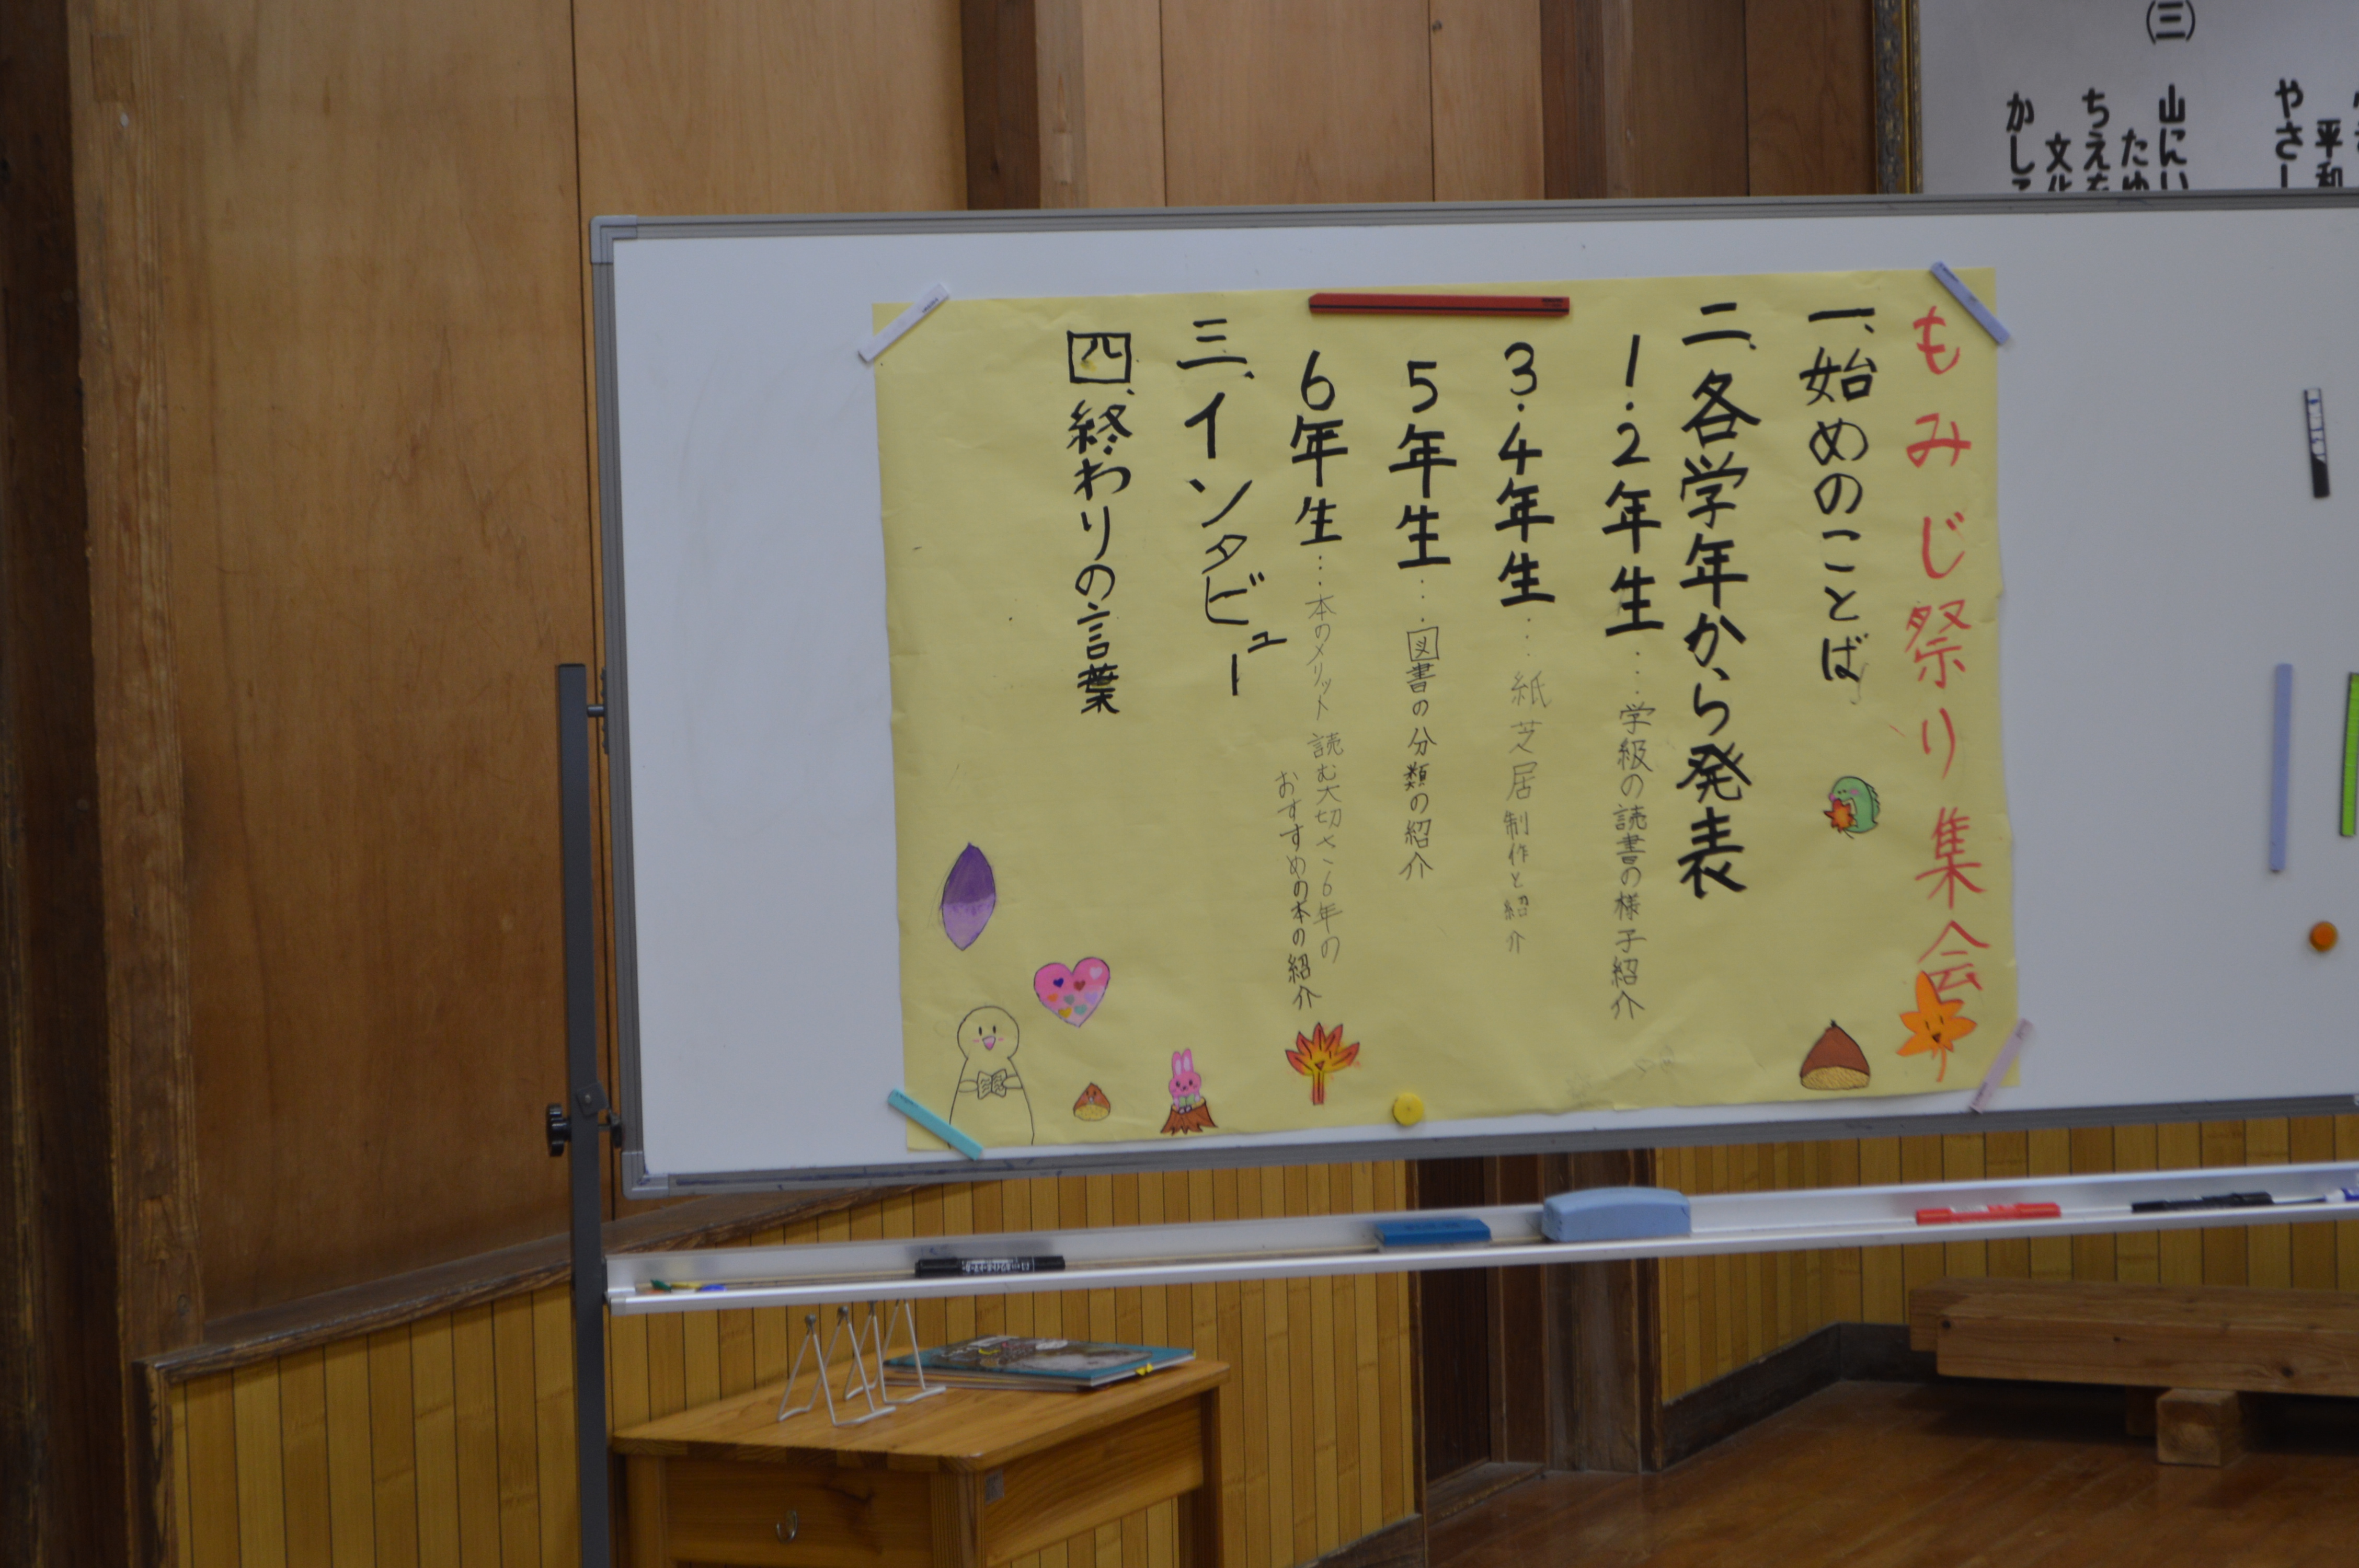 もみじ祭り集会
一、始めのことば
二、各学年から発表
1・2年生……学級の読書の様子紹介
3・4年生……紙芝居制作と紹介
5年生……図書の分類の紹介
6年生……本のメリット 読む大切さ、6年の
おすすめの本の紹介
三、インタビュー
四、終わりの言葉
やさし
(三)
山にい
たゆ
ちえを
文化
かしこ